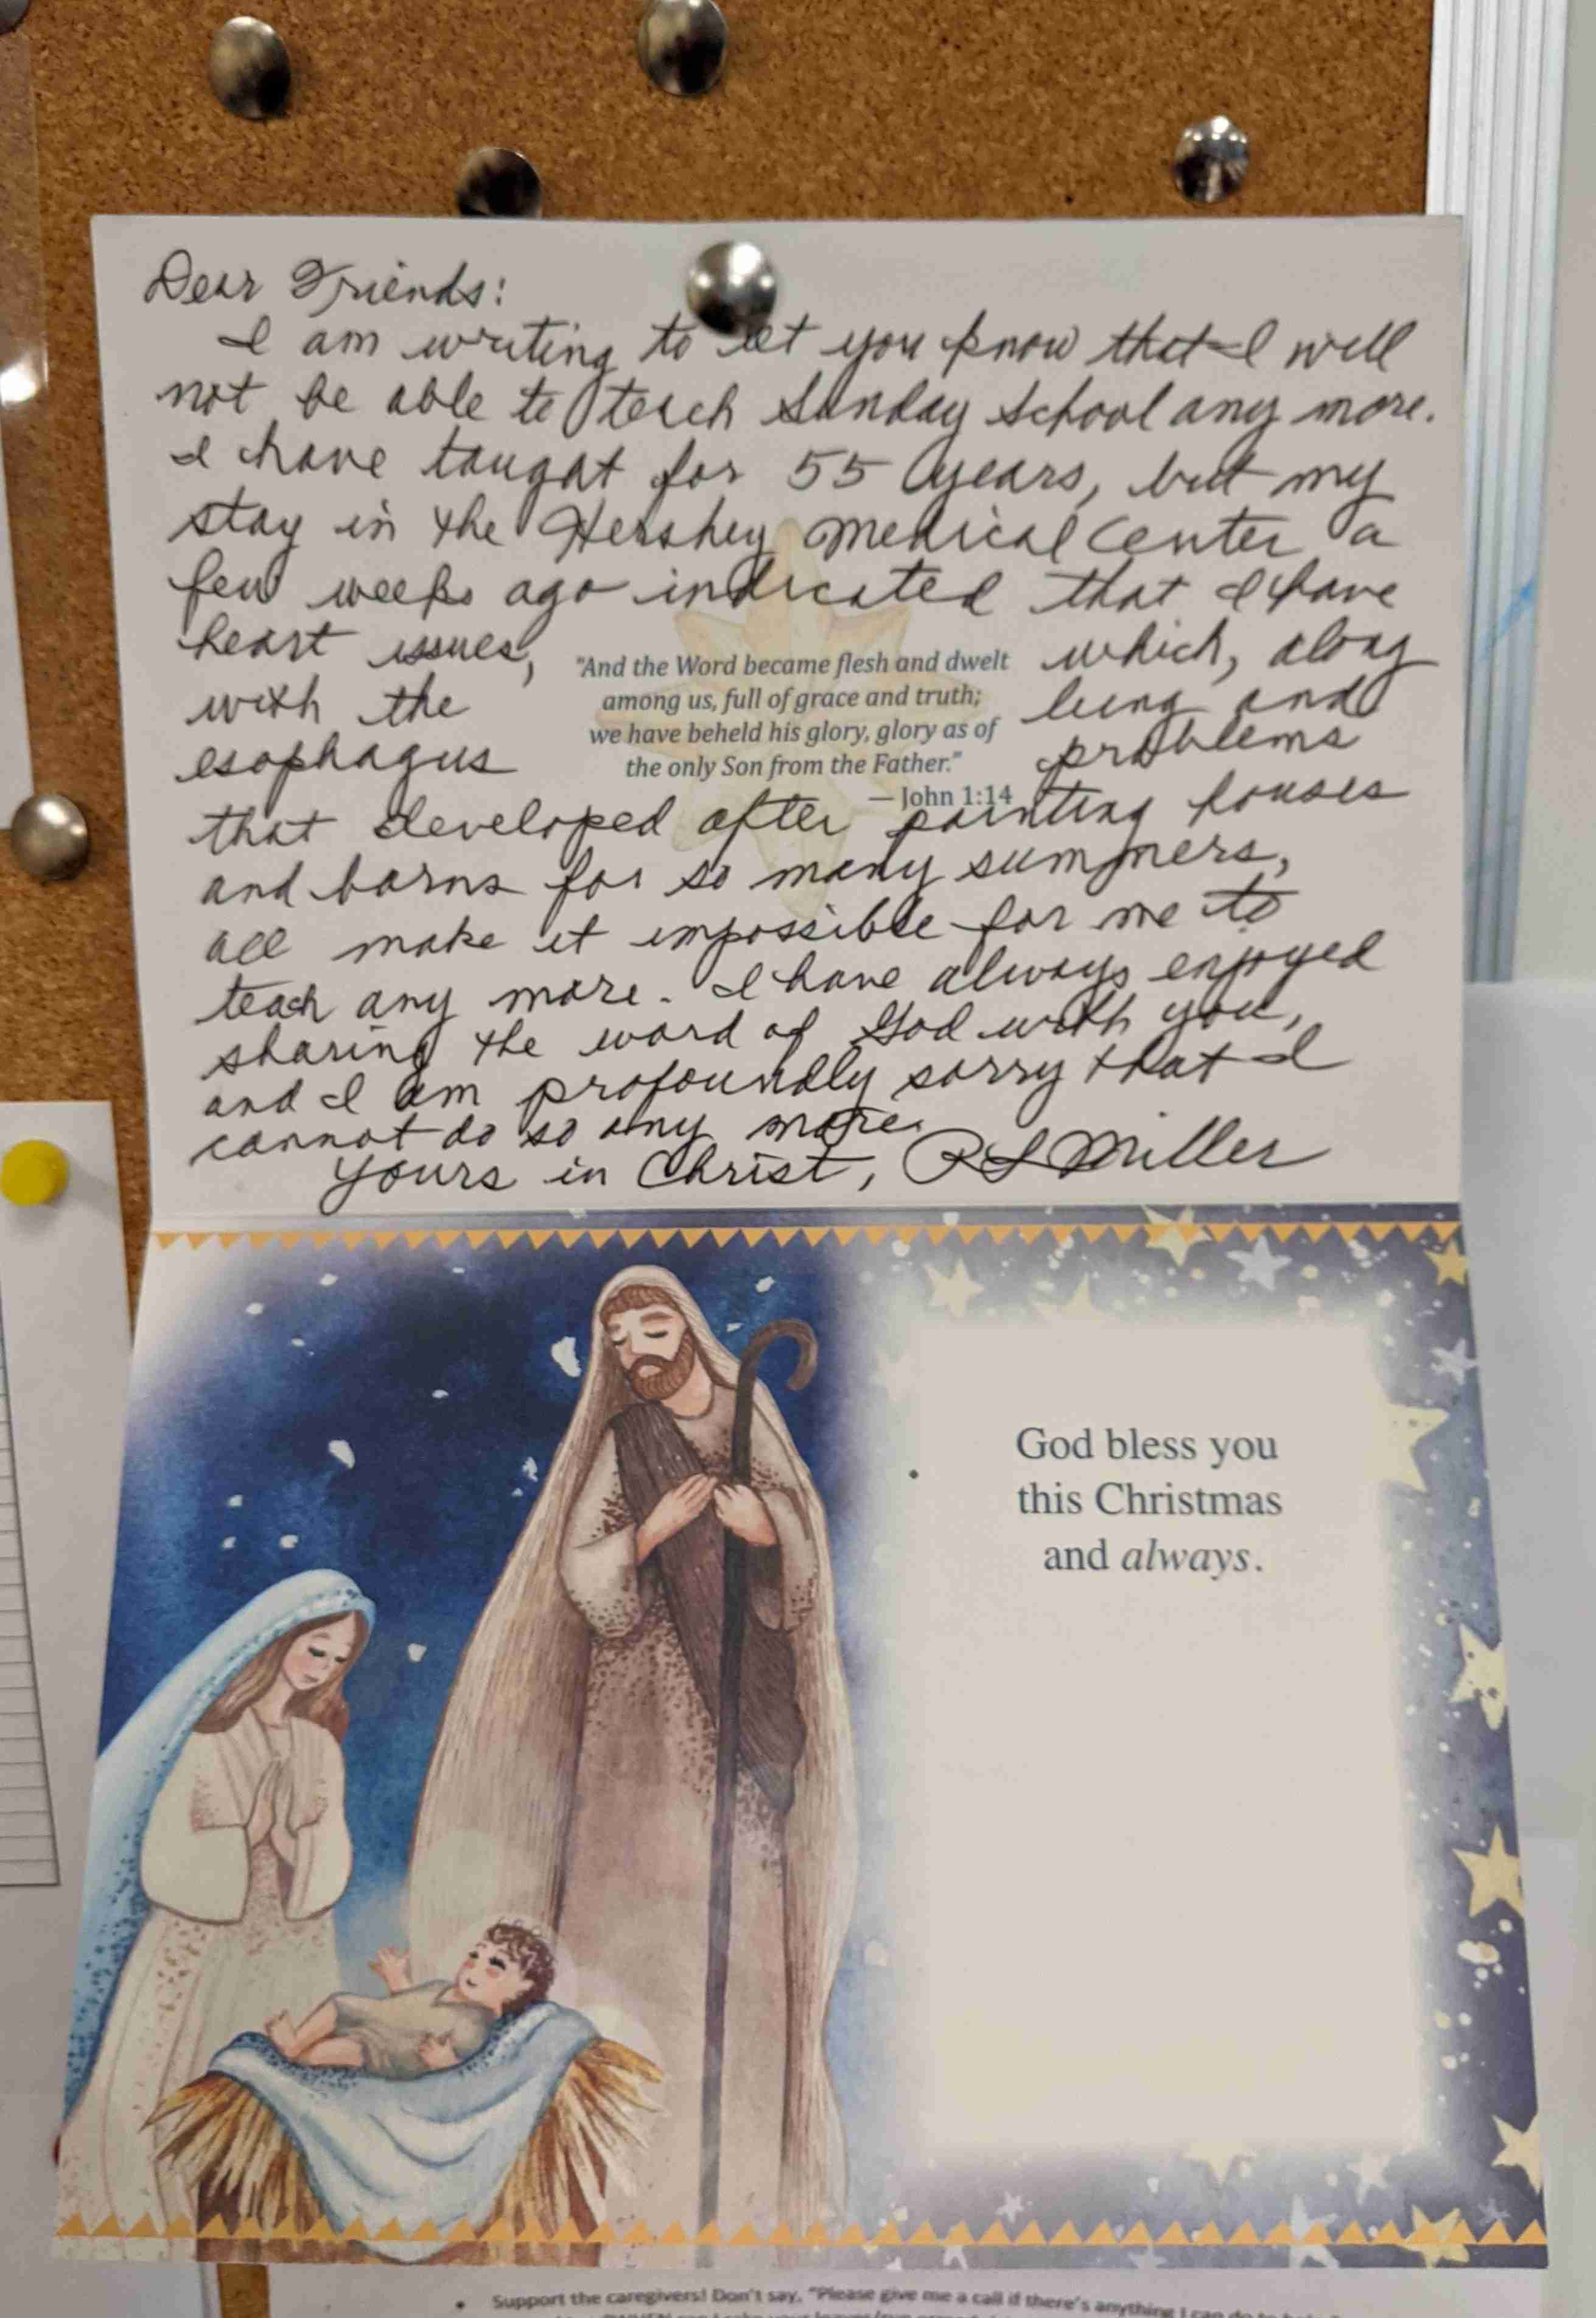 Dear Friends:
I am writing to let you know that I will
not be able to teach Sunday School any more.
I have taught for 55 years, but my
stay in the Hershey Medical Center a
few weeks ago indicated that I have
heart issues, which, along
with the lung and
esophagus problems
"And the Word became flesh and dwelt
among us, full of grace and truth;
we have beheld his glory, glory as of
the only Son from the Father."
— John 1:14
that developed after painting houses
and barns for so many summers,
all make it impossible for me to
teach any more. I have always enjoyed
sharing the word of God with you,
and I am profoundly sorry that I
cannot do so any more.
Yours in Christ, RL Miller
God bless you
this Christmas
and always.
• Support the caregivers! Don't say, "Please give me a call if there's anything I can do to